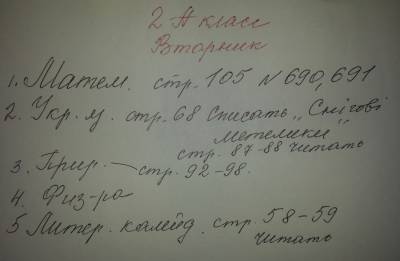 2-А класс
Вторник
1. Матем. стр. 105 № 690, 691
2. Укр. я. стр. 68 Списать „Снігові
метелики"
стр. 87-88 читать
3. Прир. – стр. 92-98.
4. Физ-ра
5 Литер. калейд. стр. 58-59
читать